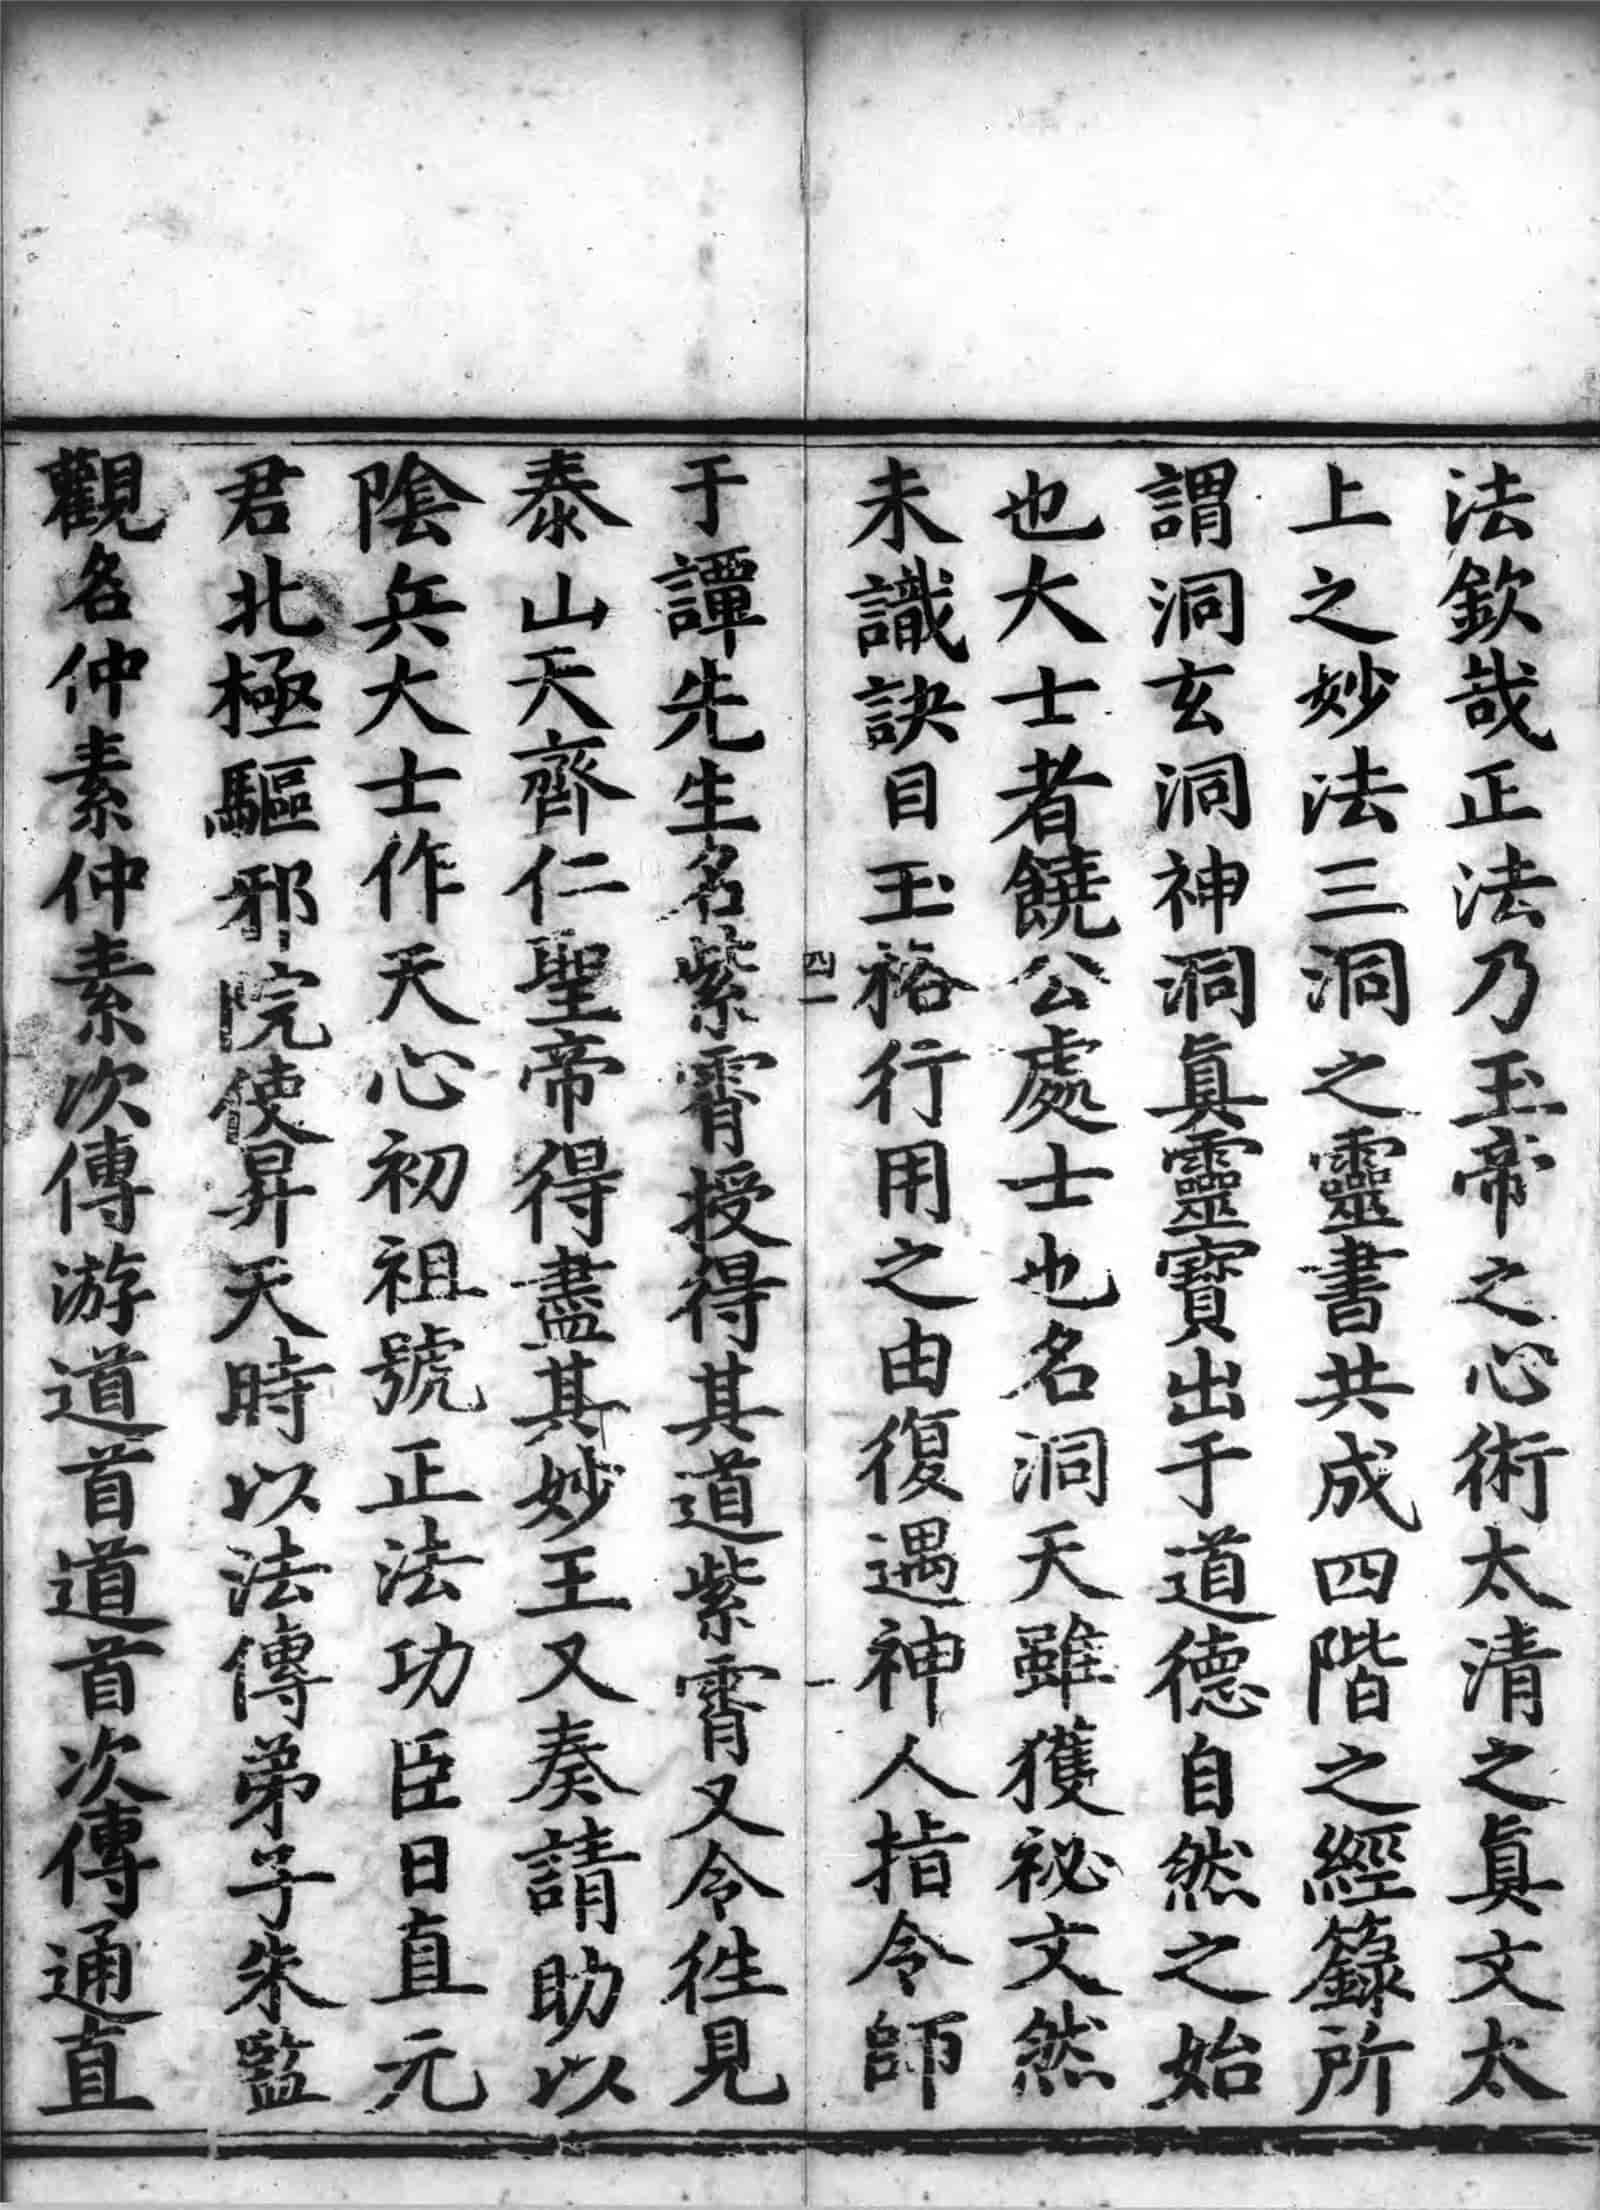 法欽哉正法乃玉帝之心術太清之眞文太
上之妙法三洞之靈書共成四階之經籙所
謂洞玄洞神洞眞靈寶出于道德自然之始
也大士者饒公處士也名洞天雖獲祕文然
未識訣目玉格行用之由復遇神人指令師
四一
一
于譚先生名紫霄授得其道紫霄又令往見
泰山天齊仁聖帝得盡其妙王又奏請助以
陰兵大士作天心初祖號正法功臣日直元
君北極驅邪院使昇天時以法傳弟子朱監
觀名仲素仲素次傳游道首道首次傳通直